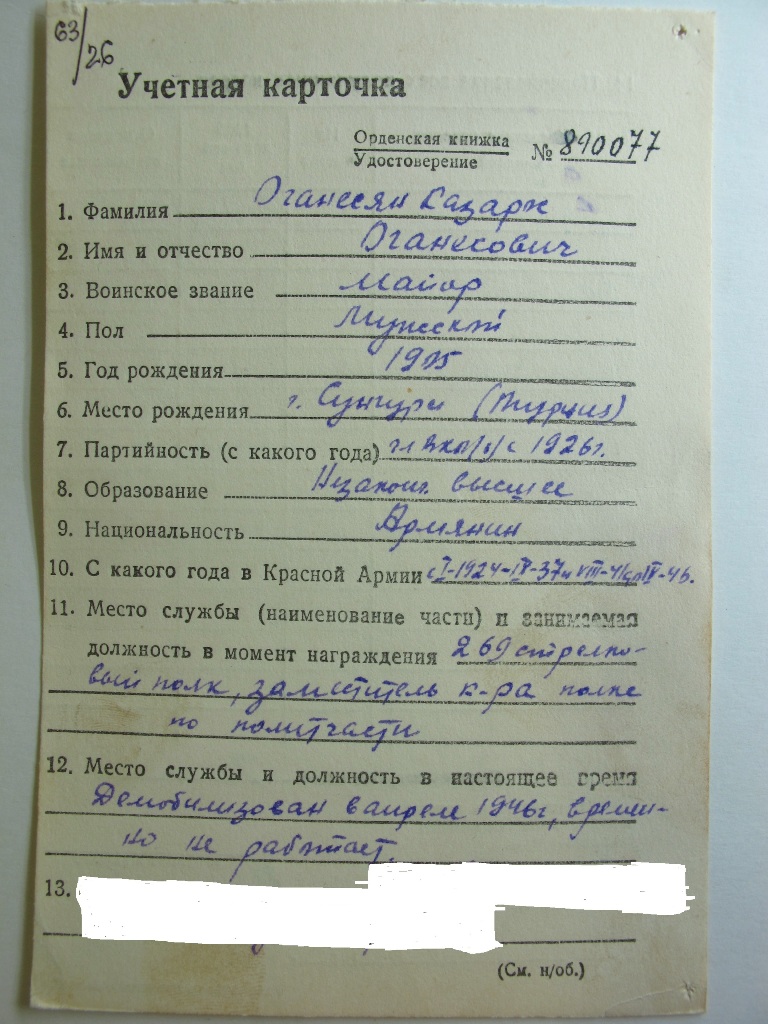 63/26
Учетная карточка
Орденская книжка
Удостоверение
№ 890077
1. Фамилия Оганесян Казарж
2. Имя и отчество Оганесович
3. Воинское звание Майор
4. Пол Мужской
5. Год рождения 1905
6. Место рождения г. (Турция)
7. Партийность (с какого года) чл ВКП/б/ с 1926г.
8. Образование Незакон. высшее
9. Национальность Армянин
10. С какого года в Красной Армии с I-1924-IV-37 и VIII-41 по IV-46.
11. Место службы (наименование части) и занимаемая
должность в момент награждения 269 стрелко-
вый полк, заместитель к-ра полка
по политчасти
12. Место службы и должность в настоящее время
Демобилизован в апреле 1946г, времен-
но не работает.
13.
(См. н/об.)